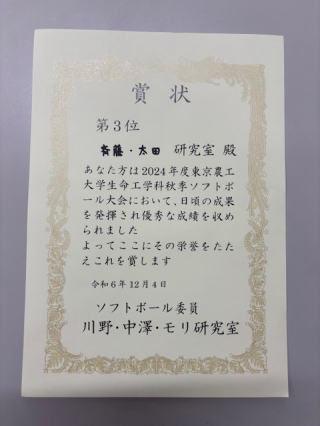 賞状
第3位
斉藤・太田 研究室 殿
あなた方は2024年度東京農工
大学生命工学科秋季ソフトボ
ール大会において、日頃の成果
を発揮され優秀な成績を収め
られました
よってここにその栄誉をたた
えこれを賞します
令和6年12月4日
ソフトボール委員
川野・中澤・モリ研究室